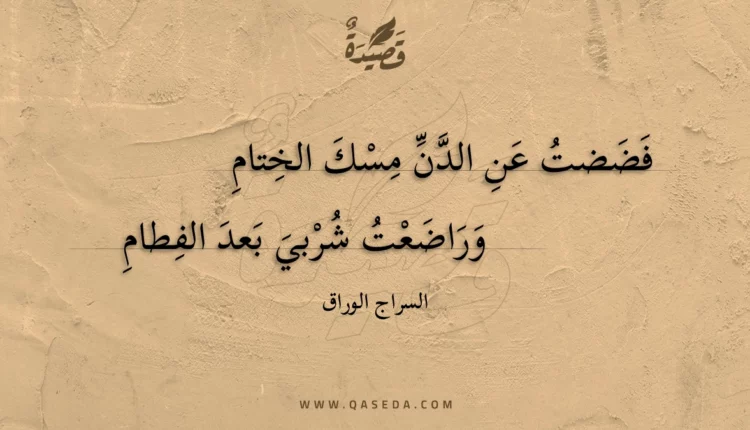 قَصِيدَةٌ
فَضَضتُ عَنِ الدَّنِّ مِسْكَ الخِتامِ
وَرَاضَعْتُ شُرْبيَ بَعدَ الفِطامِ
السراج الوراق
WWW.QASEDA.COM